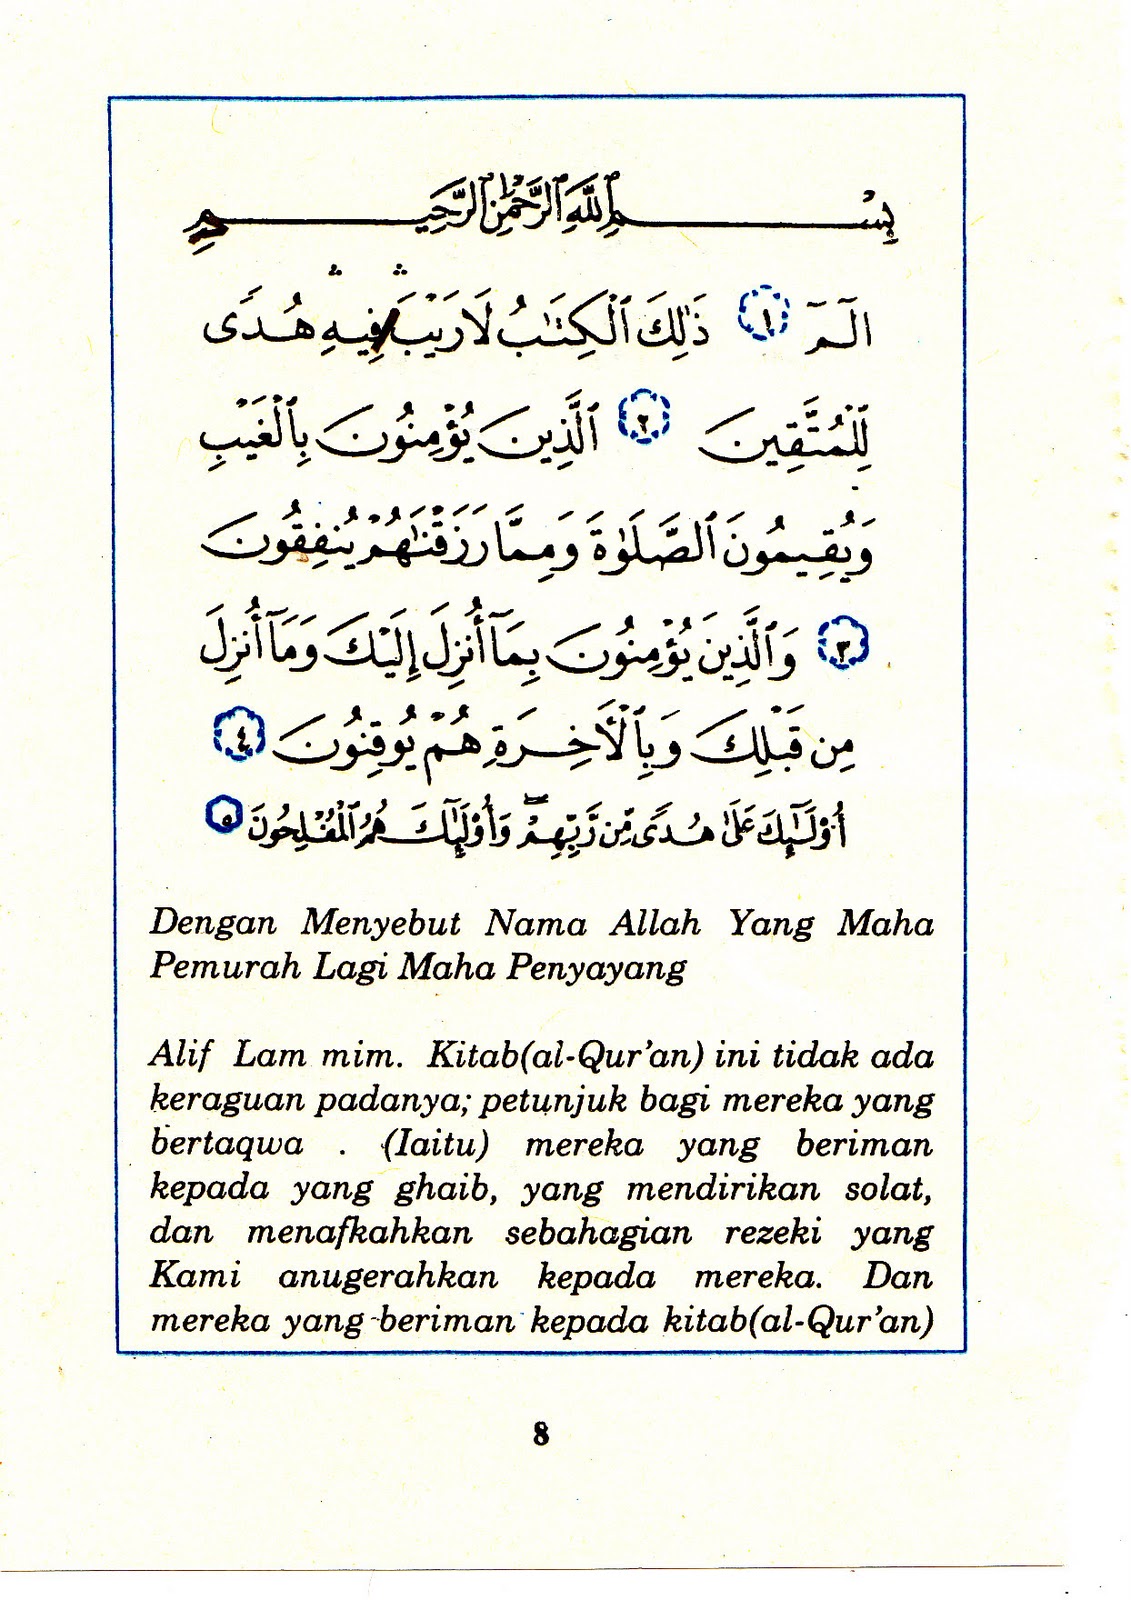 بِسْمِ ٱللَّهِ ٱلرَّحْمَٰنِ ٱلرَّحِيمِ
الٓمٓ ١ ذَٰلِكَ ٱلْكِتَٰبُ لَا رَيْبَ ۛ فِيهِ ۛ هُدًى
لِّلْمُتَّقِينَ ٢ ٱلَّذِينَ يُؤْمِنُونَ بِٱلْغَيْبِ
وَيُقِيمُونَ ٱلصَّلَوٰةَ وَمِمَّا رَزَقْنَٰهُمْ يُنفِقُونَ
٣ وَٱلَّذِينَ يُؤْمِنُونَ بِمَآ أُنزِلَ إِلَيْكَ وَمَآ أُنزِلَ
مِن قَبْلِكَ وَبِٱلْأَخِرَةِ هُمْ يُوقِنُونَ ٤
أُوْلَٰٓئِكَ عَلَىٰ هُدًى مِّن رَّبِّهِمْ ۖ وَأُوْلَٰٓئِكَ هُمُ ٱلْمُفْلِحُونَ ٥
Dengan Menyebut Nama Allah Yang Maha
Pemurah Lagi Maha Penyayang
Alif Lam mim. Kitab(al-Qur'an) ini tidak ada
keraguan padanya; petunjuk bagi mereka yang
bertaqwa . (Iaitu) mereka yang beriman
kepada yang ghaib, yang mendirikan solat,
dan menafkahkan sebahagian rezeki yang
Kami anugerahkan kepada mereka. Dan
mereka yang beriman kepada kitab(al-Qur'an)
8